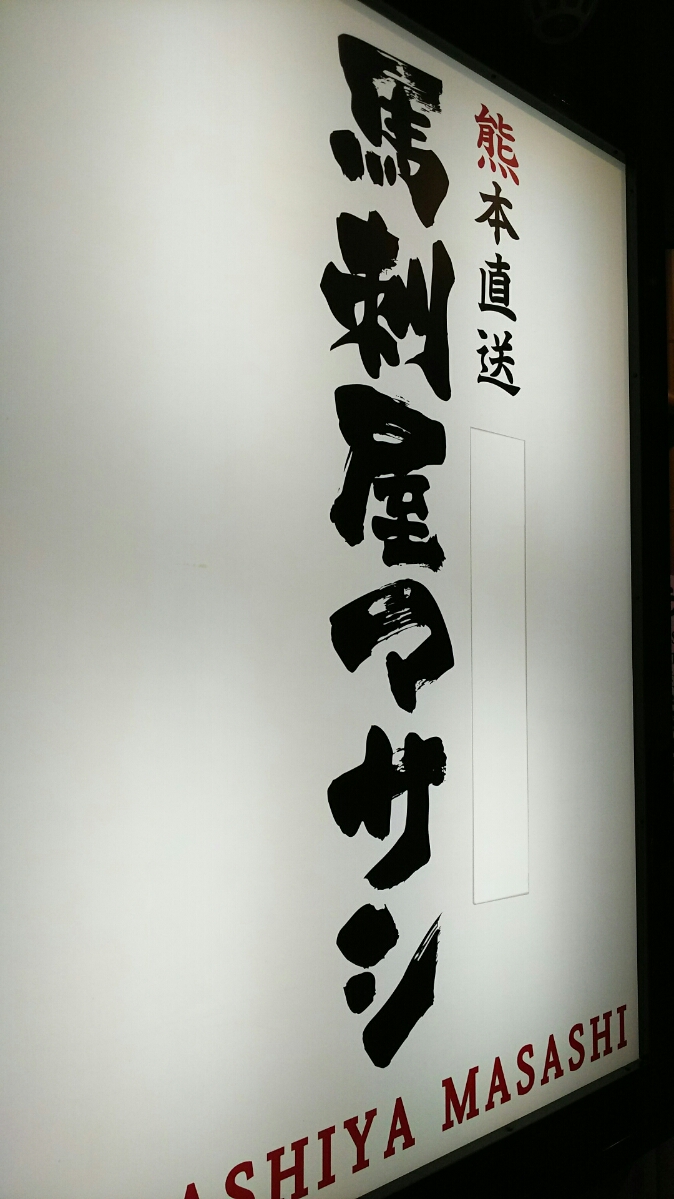 熊本直送
馬刺屋マサシ
ASHIYA MASASHI